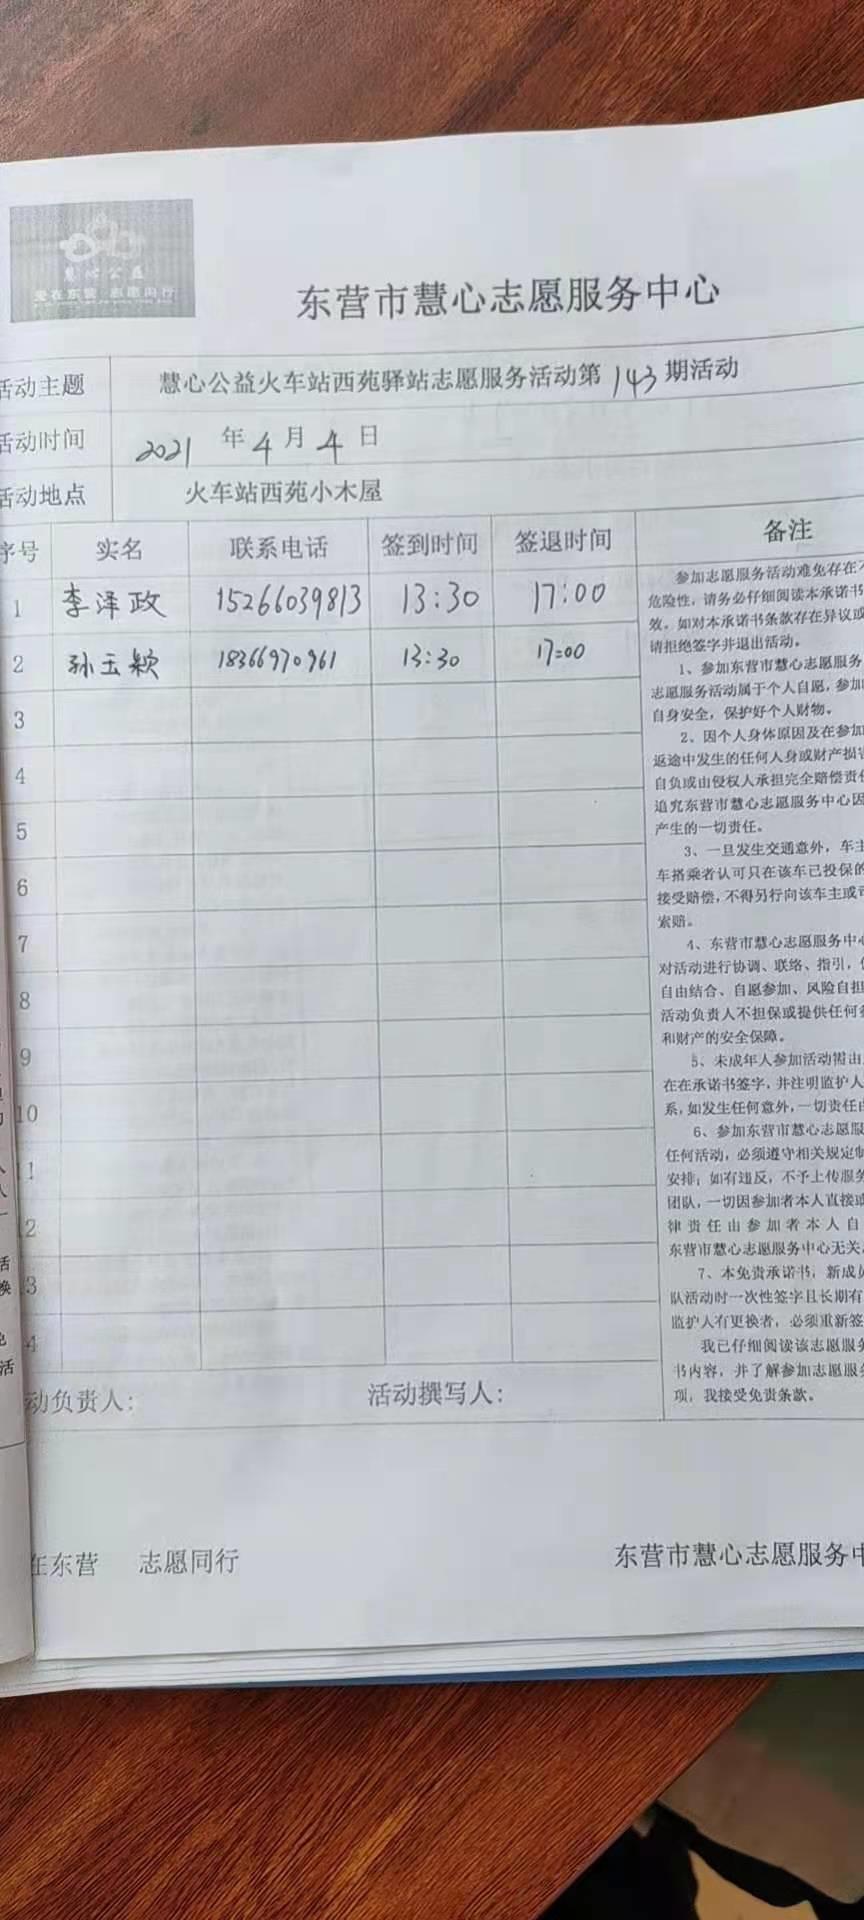 慧心公益
爱在东营 志愿同行
东营市慧心志愿服务中心
活动主题 慧心公益火车站西苑驿站志愿服务活动第143期活动
活动时间 2021年4月4日
活动地点 火车站西苑小木屋
序号 实名 联系电话 签到时间 签退时间 备注
1 李泽政 15266039813 13:30 17:00
2 孙玉颖 18366970961 13:30 17:00
3
4
5
6
7
8
9
10
11
12
13
14
参加志愿服务活动难免存在不
危险性，请务必仔细阅读本承诺书
效。如对本承诺书条款存在异议或
请拒绝签字并退出活动。
1、参加东营市慧心志愿服务
志愿服务活动属于个人自愿，参加
自身安全，保护好个人财物。
2、因个人身体原因及在参加
返途中发生的任何人身或财产损害
自负或由侵权人承担完全赔偿责任
追究东营市慧心志愿服务中心因
产生的一切责任。
3、一旦发生交通意外，车主
车搭乘者认可只在该车已投保的
接受赔偿，不得另行向该车主或司
索赔。
4、东营市慧心志愿服务中心
对活动进行协调、联络、指引，
自由结合、自愿参加、风险自担
活动负责人不担保或提供任何
和财产的安全保障。
5、未成年人参加活动需由
在在承诺书签字，并注明监护人
系，如发生任何意外，一切责任由
6、参加东营市慧心志愿服
任何活动，必须遵守相关规定制
安排；如有违反，不予上传服务
团队，一切因参加者本人直接或
律责任由参加者本人自
东营市慧心志愿服务中心无关。
7、本免责承诺书，新成员
队活动时一次性签字且长期有
监护人有更换者，必须重新签
我已仔细阅读该志愿服务
书内容，并了解参加志愿服务
项，我接受免责条款。
动负责人： 活动撰写人：
在东营 志愿同行 东营市慧心志愿服务中